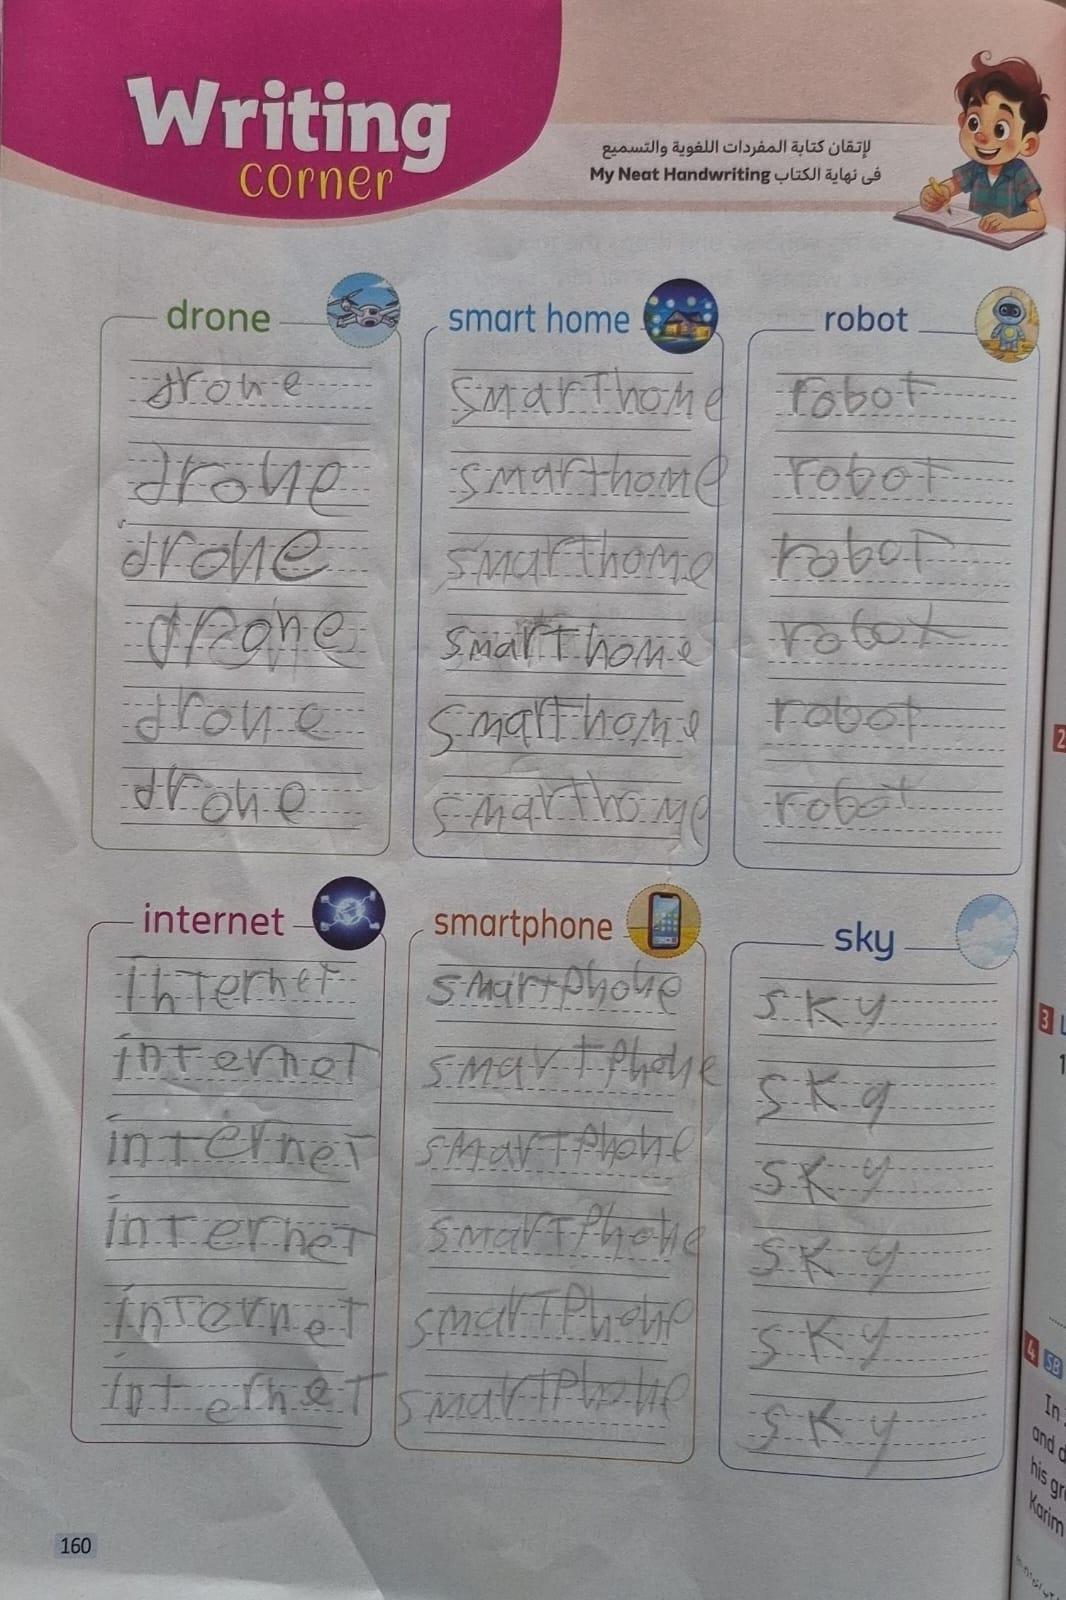 Writing
corner
لإتقان كتابة المفردات اللغوية والتسميع
فى نهاية الكتاب My Neat Handwriting
drone
drone
drone
drone
drone
drone
drone
smart home
smart home
smart home
smart home
smart home
smart home
smart home
robot
robot
robot
robot
robot
robot
robot
internet
internet
internet
internet
internet
internet
internet
smartphone
smartphone
smartphone
smartphone
smartphone
smartphone
smartphone
sky
sky
sky
sky
sky
sky
sky
160
2
3
1
4 SB
In
and
his
Karim